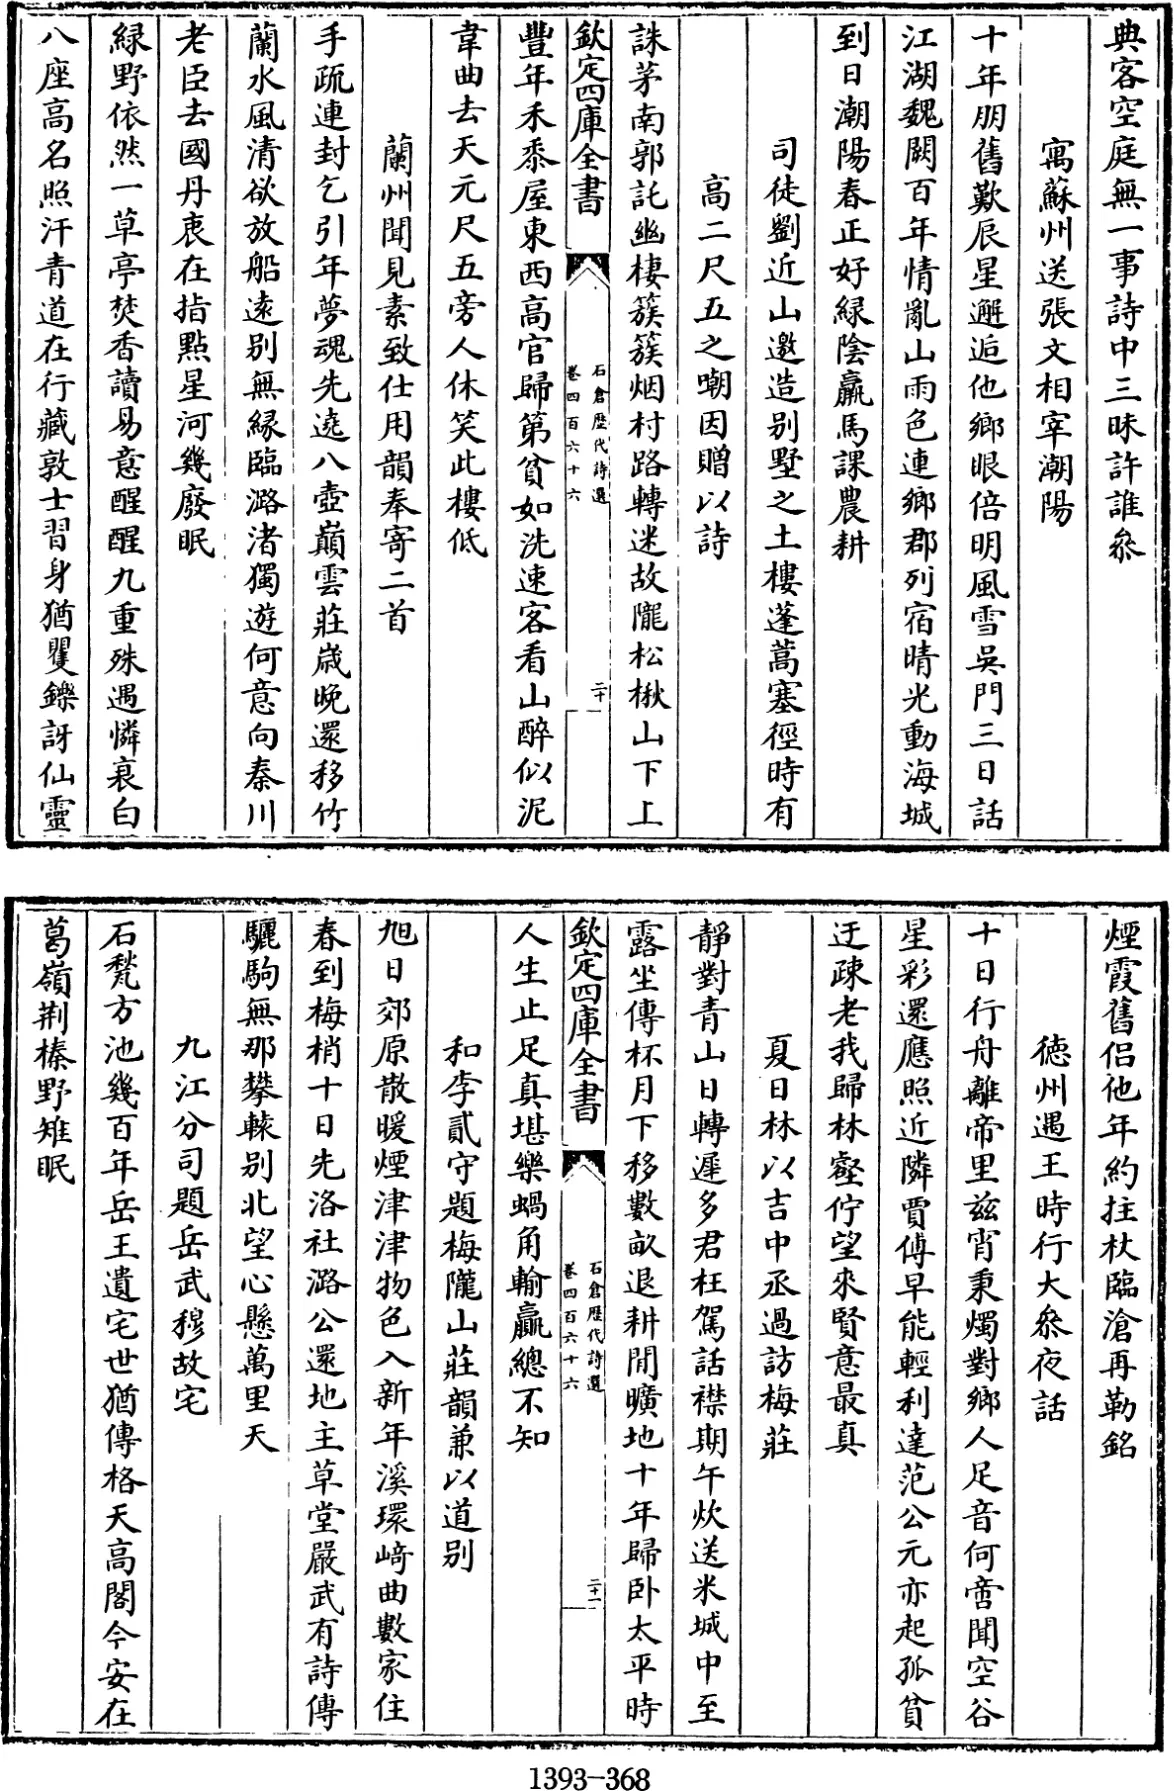 典客空庭無一事詩中三昧許誰叅
寓蘇州送張文相宰潮陽
十年朋舊歎辰星邂逅他鄉眼倍明風雪吳門三日話
江湖魏闕百年情亂山雨色連鄉郡列宿晴光動海城
到日潮陽春正好緑陰羸馬課農耕
司徒劉近山邀造别墅之土樓蓬蒿塞徑時有
高二尺五之嘲因贈以詩
誅茅南郭託幽棲簇簇烟村路轉迷故隴松楸山下上
欽定四庫全書
石倉歴代詩選
卷四百六十六
二十
豐年禾黍屋東西高官歸第貧如洗速客看山醉似泥
韋曲去天元尺五旁人休笑此樓低
蘭州聞見素致仕用韻奉寄二首
手疏連封乞引年夢魂先遶八壺巔雲莊歲晚還移竹
蘭水風清欲放船逺别無縁臨潞渚獨遊何意向秦川
老臣去國丹衷在指點星河幾廢眠
緑野依然一草亭焚香讀易意醒醒九重殊遇憐衰白
八座高名照汗青道在行藏敦士習身猶矍鑠訝仙靈
煙霞舊侣他年約拄杖臨滄再勒銘
德州遇王時行大叅夜話
十日行舟離帝里兹宵秉燭對鄉人足音何啻聞空谷
星彩還應照近隣賈傅早能輕利達范公元亦起孤貧
迂疎老我歸林壑佇望來賢意最真
夏日林以吉中丞過訪梅莊
靜對青山日轉遲多君枉駕話襟期午炊送米城中至
露坐傳杯月下移數畝退耕閒曠地十年歸卧太平時
欽定四庫全書
石倉歴代詩選
卷四百六十六
二十一
人生止足真堪樂蝸角輸贏總不知
和李貳守題梅隴山莊韻兼以道别
旭日郊原散暖煙津津物色入新年溪環﨑曲數家住
春到梅梢十日先洛社潞公還地主草堂嚴武有詩傳
驪駒無那攀轅别北望心懸萬里天
九江分司題岳武穆故宅
石甃方池幾百年岳王遺宅世猶傳格天高閣今安在
葛嶺荆榛野雉眠
1393-368